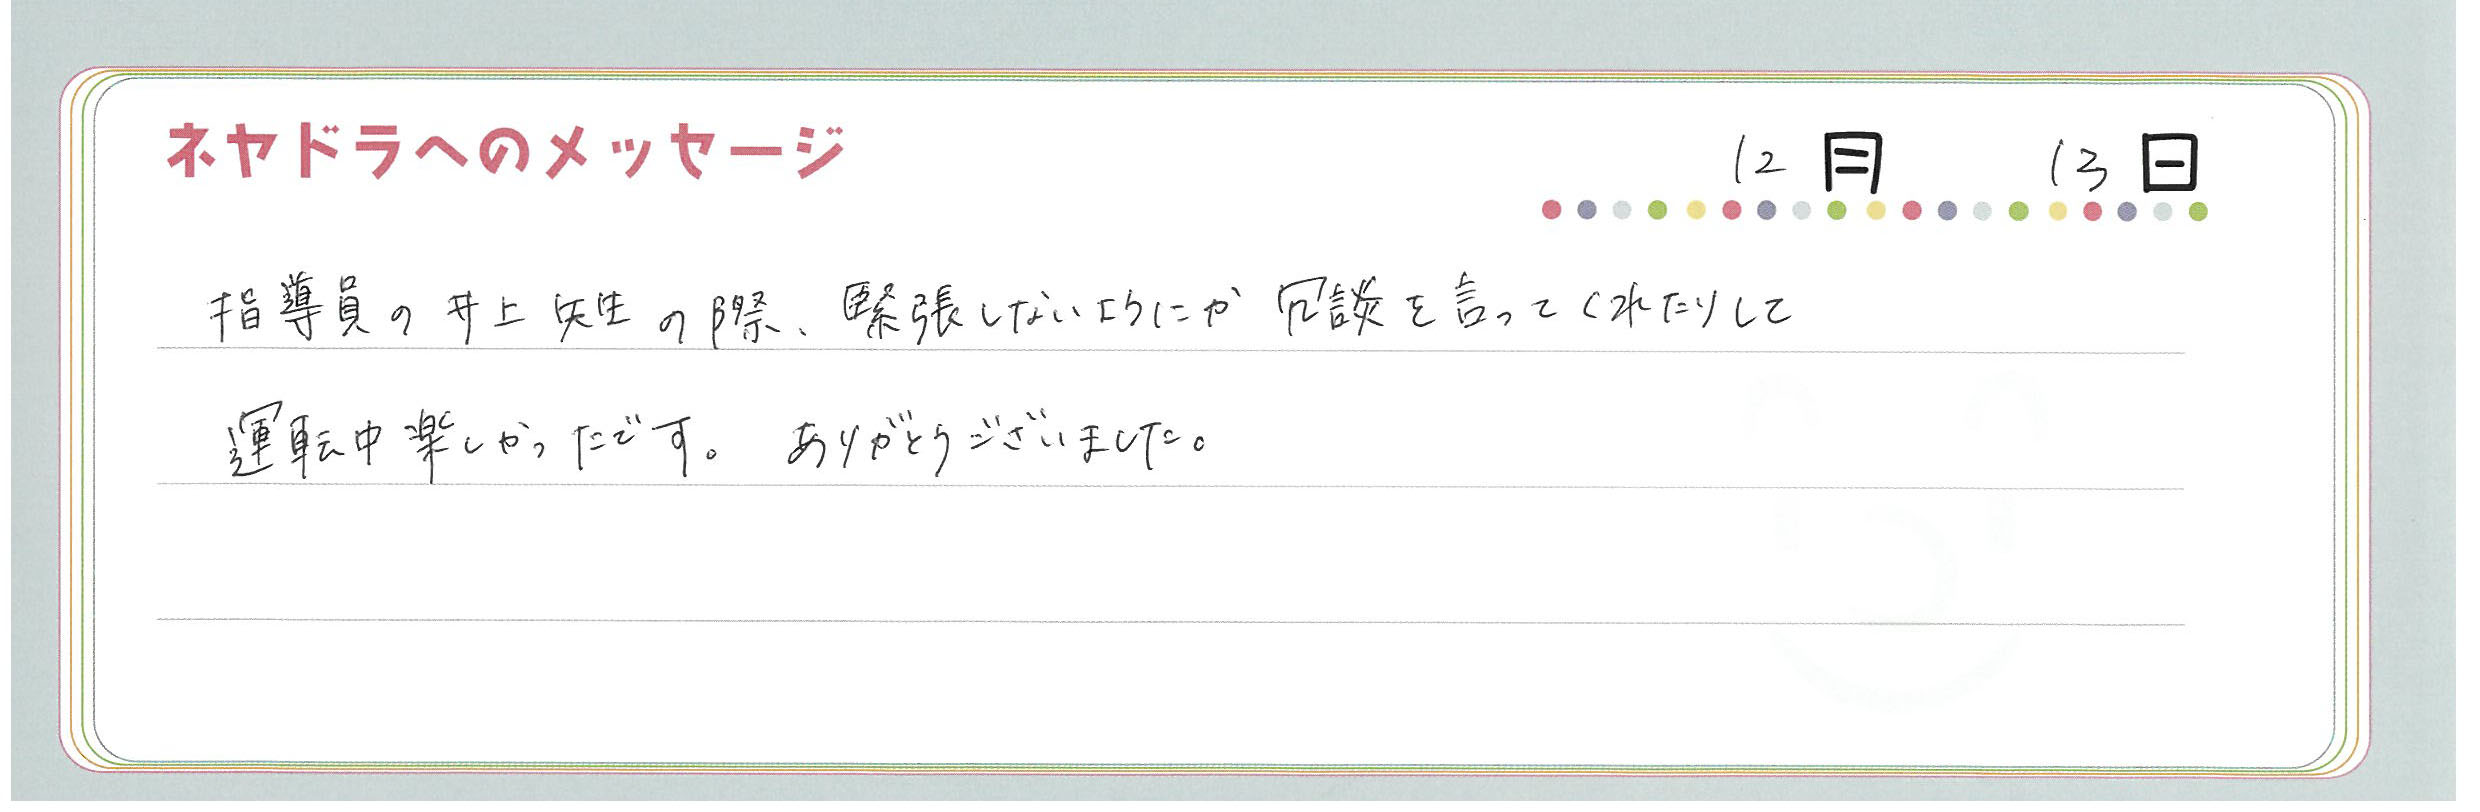 ネヤドラへのメッセージ
12月 13日
指導員の井上先生の際、緊張しないようにか冗談を言ってくれたりして
運転中楽しかったです。 ありがとうございました。